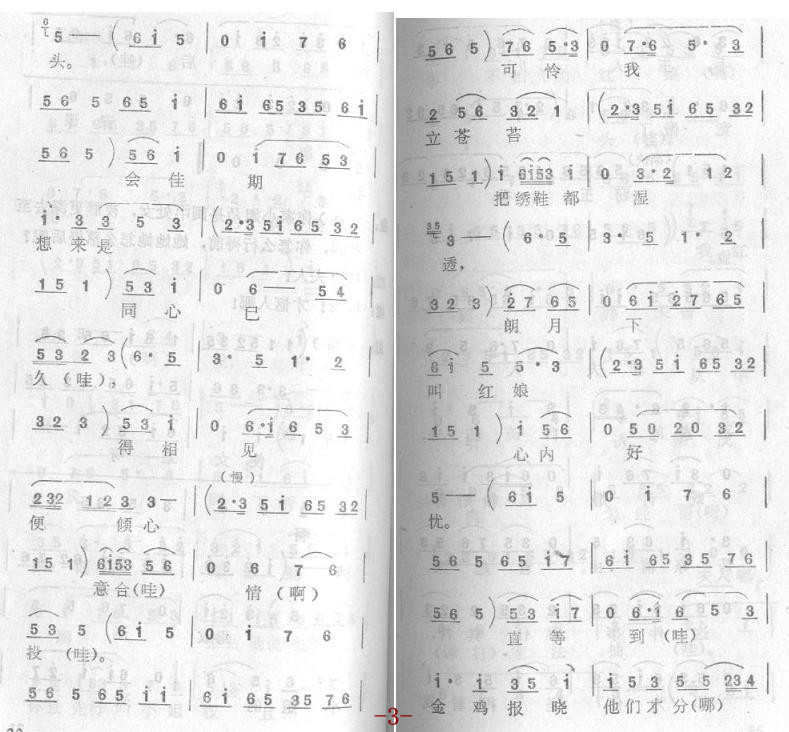 6 5 —— ( 6 i 5 | 0 i 7 6 |
头。
5 6 5 6 5 i | 6 i 6 5 3 5 6 i |
5 6 5 ) 5 6 i | 0 i 7 6 5 3 |
会 佳 期
i · 3 3 5 3 | ( 2 · 3 5 i 6 5 3 2 |
想 来 是
1 5 1 ) 5 3 i | 0 6 —— 5 4 |
同 心 已
5 3 2 3 ( 6 · 5 | 3 · 5 1 · 2 |
久 (哇),
3 2 3 ) 5 3 i | 0 6 · i 6 5 3 |
得 相 见
(慢)
2 3 2 1 2 3 3 — | ( 2 · 3 5 i 6 5 3 2 |
便 倾 心
1 5 1 ) 6 i 5 3 5 6 | 0 6 7 6 |
意 合 (哇) 情 (啊)
5 3 5 ( 6 i 5 | 0 i 7 6 |
投 (哇)。
5 6 5 6 5 i i | 6 i 6 5 3 5 7 6 |
5 6 5 ) 7 6 5 · 3 | 0 7 · 6 5 · 3 |
可 怜 我
2 5 6 3 2 1 | ( 2 · 3 5 i 6 5 3 2 |
立 苍 苔
1 5 1 ) i 6 i 5 3 i | 0 3 · 2 1 2 |
把 绣 鞋 都 湿
3 5 3 —— ( 6 · 5 | 3 · 5 1 · 2 |
透,
3 2 3 ) 2 7 6 5 | 0 6 i 2 7 6 5 |
朗 月 下
6 i 5 5 · 3 | ( 2 · 3 5 i 6 5 3 2 |
叫 红 娘
1 5 1 ) i 5 6 | 0 5 0 2 0 3 2 |
心 内 好
5 —— ( 6 i 5 | 0 i 7 6 |
忧。
5 6 5 6 5 i 7 | 6 i 6 5 3 5 7 6 |
5 6 5 ) 5 3 i 7 | 0 6 · i 6 5 3 |
直 等 到 (哇)
i · i 3 5 i | i 5 3 5 5 2 3 4 |
金 鸡 报 晓 他 们 才 分 (哪)
-3-